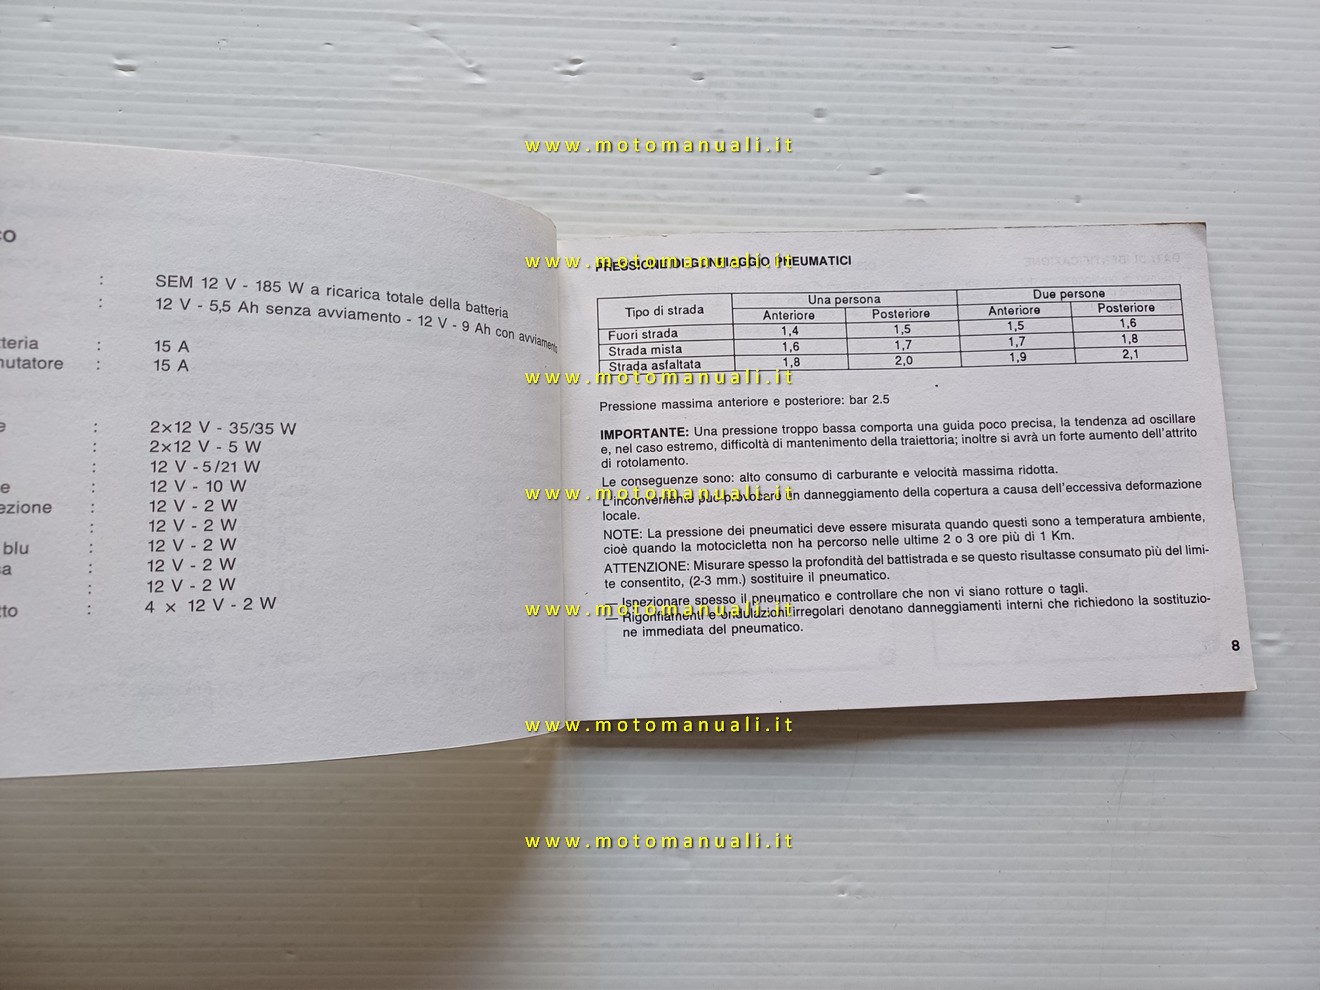 www.motomanuali.it
co
: SEM 12 V - 185 W a ricarica totale della batteria
: 12 V - 5,5 Ah senza avviamento - 12 V - 9 Ah con avviamento
tteria : 15 A
mutatore : 15 A
e : 2×12 V - 35/35 W
: 2×12 V - 5 W
: 12 V - 5/21 W
e : 12 V - 10 W
ezione : 12 V - 2 W
: 12 V - 2 W
blu : 12 V - 2 W
sa : 12 V - 2 W
: 12 V - 2 W
tto : 4 × 12 V - 2 W
www.motomanuali.it
PRESSIONE DI GONFIAGGIO PNEUMATICI
Tipo di strada Una persona Due persone
Anteriore Posteriore Anteriore Posteriore
Fuori strada 1,4 1,5 1,5 1,6
Strada mista 1,6 1,7 1,7 1,8
Strada asfaltata 1,8 2,0 1,9 2,1
www.motomanuali.it
Pressione massima anteriore e posteriore: bar 2.5
IMPORTANTE: Una pressione troppo bassa comporta una guida poco precisa, la tendenza ad oscillare
e, nel caso estremo, difficoltà di mantenimento della traiettoria; inoltre si avrà un forte aumento dell'attrito
di rotolamento.
Le conseguenze sono: alto consumo di carburante e velocità massima ridotta.
L'inconveniente può provocare un danneggiamento della copertura a causa dell'eccessiva deformazione
www.motomanuali.it
locale.
NOTE: La pressione dei pneumatici deve essere misurata quando questi sono a temperatura ambiente,
cioè quando la motocicletta non ha percorso nelle ultime 2 o 3 ore più di 1 Km.
ATTENZIONE: Misurare spesso la profondità del battistrada e se questo risultasse consumato più del limi-
te consentito, (2-3 mm.) sostituire il pneumatico.
— Ispezionare spesso il pneumatico e controllare che non vi siano rotture o tagli.
— Rigonfiamenti e ondulazioni irregolari denotano danneggiamenti interni che richiedono la sostituzio-
www.motomanuali.it
ne immediata del pneumatico.
8
www.motomanuali.it
www.motomanuali.it